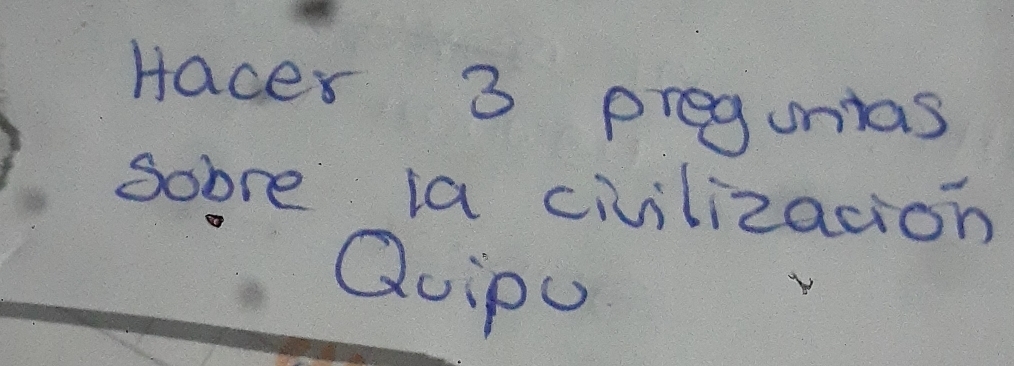 Hacer 3 preguntas
sobre la civilización
Quipu